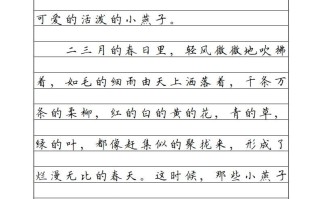 可爱的活泼的小燕子。
二三月的春日里，轻风微微地吹拂
着，如毛的细雨由天上洒落着，千条万
条的柔柳，红的白的黄的花，青的草，
绿的叶，都像赶集似的聚拢来，形成了
烂漫无比的春天。这时候，那些小燕子